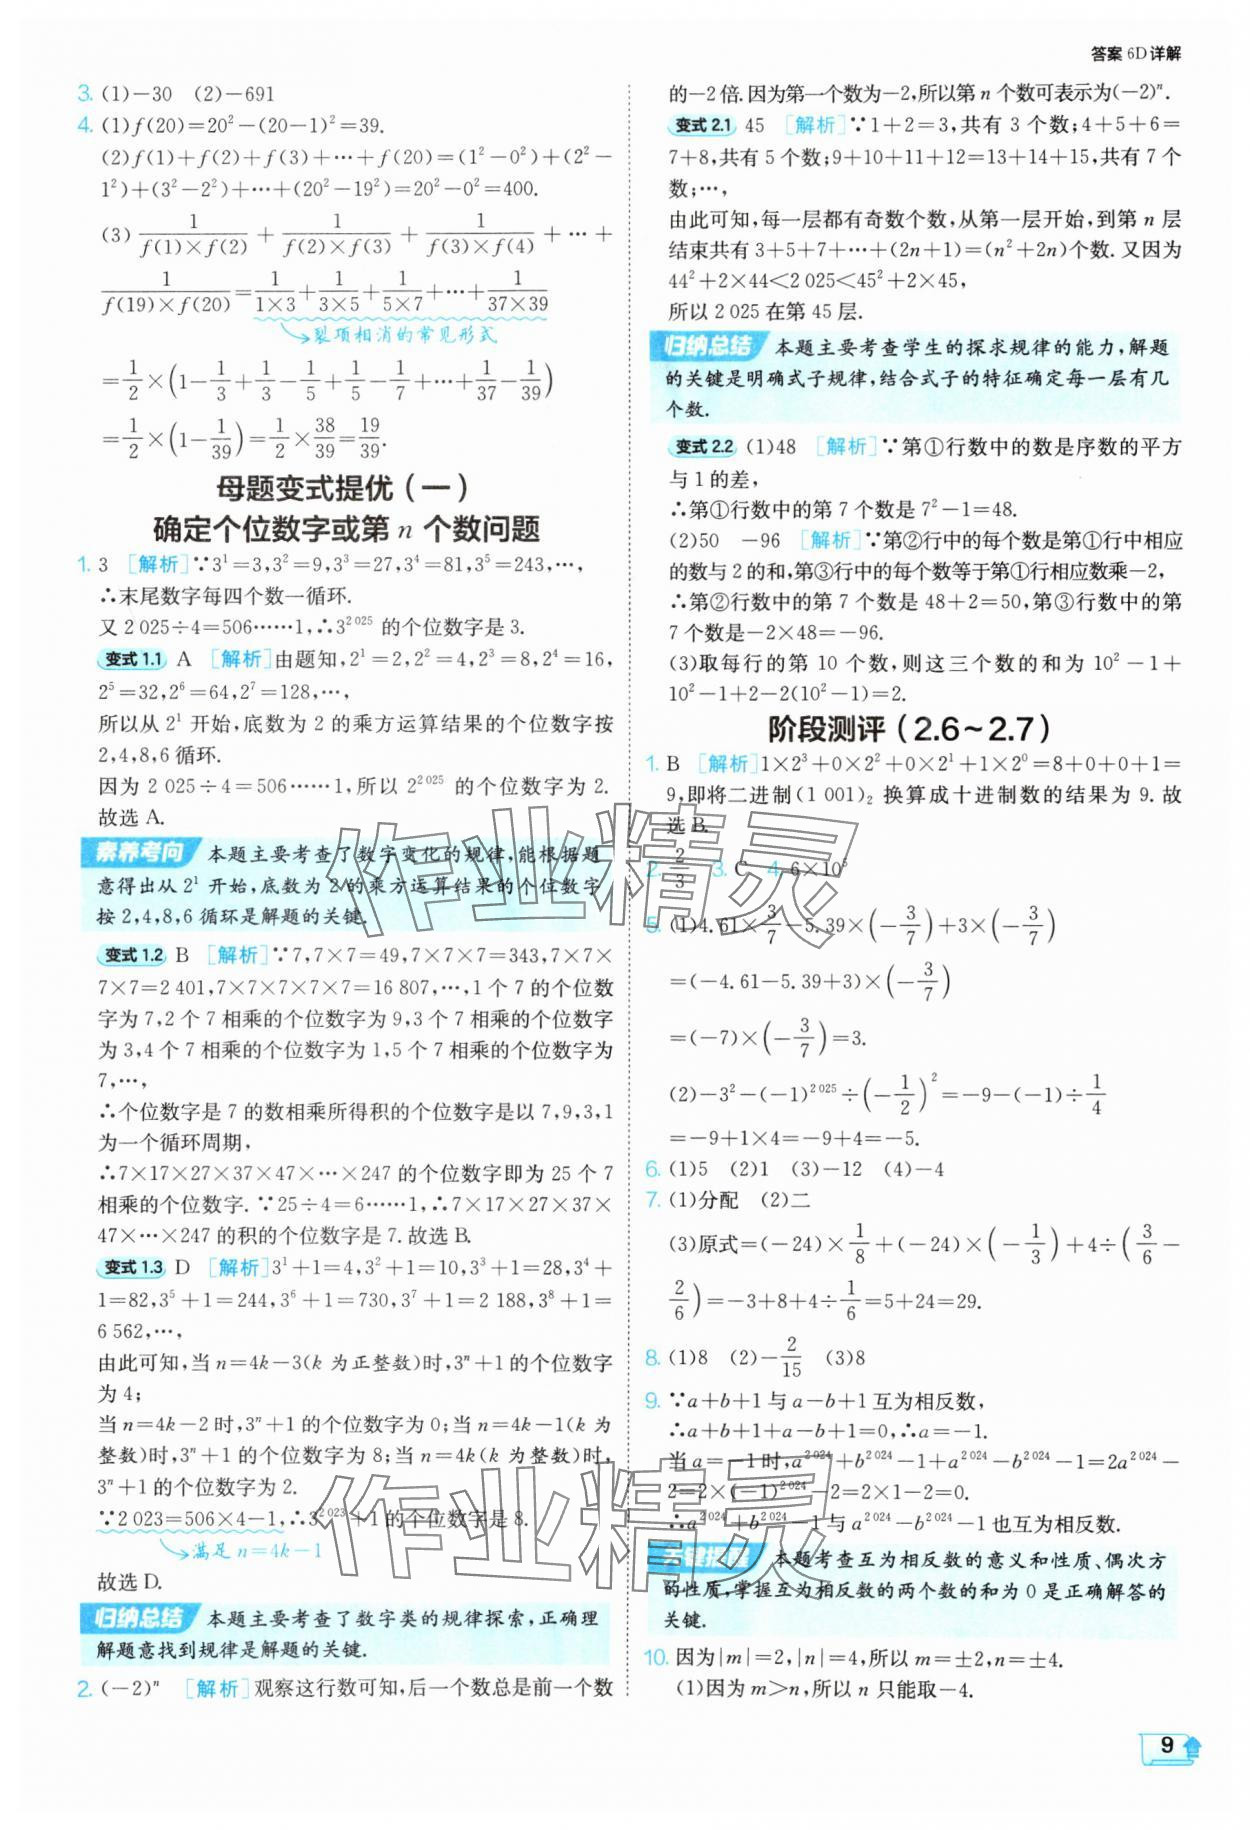 答案 6D详解
3. (1)-30 (2)-691
4. (1)f(20)=20²-(20-1)²=39.
(2)f(1)+f(2)+f(3)+…+f(20)=(1²-0²)+(2²-
1²)+(3²-2²)+…+(20²-19²)=20²-0²=400.
(3) 1/(f(1)×f(2)) + 1/(f(2)×f(3)) + 1/(f(3)×f(4)) + … +
1/(f(19)×f(20)) = 1/(1×3) + 1/(3×5) + 1/(5×7) + … + 1/(37×39)
裂项相消的常见形式
= 1/2 ×(1- 1/3 + 1/3 - 1/5 + 1/5 - 1/7 +…+ 1/37 - 1/39)
= 1/2 ×(1- 1/39)= 1/2 × 38/39 = 19/39.
母题变式提优(一)
确定个位数字或第 n 个数问题
1. 3 [解析]∵3¹=3,3²=9,3³=27,3⁴=81,3⁵=243,…,
∴末尾数字每四个数一循环.
又 2 025÷4=506……1,∴3²⁰²⁵ 的个位数字是 3.
变式 1.1 A [解析]由题知,2¹=2,2²=4,2³=8,2⁴=16,
2⁵=32,2⁶=64,2⁷=128,…,
所以从 2¹ 开始,底数为 2 的乘方运算结果的个位数字按
2,4,8,6 循环.
因为 2 025÷4=506……1,所以 2²⁰²⁵ 的个位数字为 2.
故选 A.
素养考向 本题主要考查了数字变化的规律,能根据题
意得出从 2¹ 开始,底数为 2 的乘方运算结果的个位数字
按 2,4,8,6 循环是解题的关键.
变式 1.2 B [解析]∵7,7×7=49,7×7×7=343,7×7×
7×7=2 401,7×7×7×7×7=16 807,…,1 个 7 的个位数
字为 7,2 个 7 相乘的个位数字为 9,3 个 7 相乘的个位数字
为 3,4 个 7 相乘的个位数字为 1,5 个 7 相乘的个位数字为
7,…,
∴个位数字是 7 的数相乘所得积的个位数字是以 7,9,3,1
为一个循环周期,
∴7×17×27×37×47×…×247 的个位数字即为 25 个 7
相乘的个位数字. ∵25÷4=6……1,∴7×17×27×37×
47×…×247 的积的个位数字是 7. 故选 B.
变式 1.3 D [解析]3¹+1=4,3²+1=10,3³+1=28,3⁴+
1=82,3⁵+1=244,3⁶+1=730,3⁷+1=2 188,3⁸+1=
6 562,…,
由此可知,当 n=4k-3(k 为正整数)时,3ⁿ+1 的个位数字
为 4;
当 n=4k-2 时,3ⁿ+1 的个位数字为 0;当 n=4k-1(k 为
整数)时,3ⁿ+1 的个位数字为 8;当 n=4k(k 为整数)时,
3ⁿ+1 的个位数字为 2.
∵2 023=506×4-1,∴3²⁰²³+1 的个位数字是 8.
满足 n=4k-1
故选 D.
归纳总结 本题主要考查了数字类的规律探索,正确理
解题意找到规律是解题的关键.
2. (-2)ⁿ [解析]观察这行数可知,后一个数总是前一个数
的-2 倍. 因为第一个数为-2,所以第 n 个数可表示为(-2)ⁿ.
变式 2.1 45 [解析]∵1+2=3,共有 3 个数;4+5+6=
7+8,共有 5 个数;9+10+11+12=13+14+15,共有 7 个
数;…,
由此可知,每一层都有奇数个数,从第一层开始,到第 n 层
结束共有 3+5+7+…+(2n+1)=(n²+2n)个数. 又因为
44²+2×44<2 025<45²+2×45,
所以 2 025 在第 45 层.
归纳总结 本题主要考查学生的探求规律的能力,解题
的关键是明确式子规律,结合式子的特征确定每一层有几
个数.
变式 2.2 (1)48 [解析]∵第①行数中的数是序数的平方
与 1 的差,
∴第①行数中的第 7 个数是 7²-1=48.
(2)50 -96 [解析]∵第②行中的每个数是第①行中相应
的数与 2 的和,第③行中的每个数等于第①行相应数乘-2,
∴第②行数中的第 7 个数是 48+2=50,第③行数中的第
7 个数是-2×48=-96.
(3)取每行的第 10 个数,则这三个数的和为 10²-1+
10²-1+2-2(10²-1)=2.
阶段测评(2.6~2.7)
1. B [解析]1×2³+0×2²+0×2¹+1×2⁰=8+0+0+1=
9,即将二进制(1 001)₂ 换算成十进制数的结果为 9. 故
选 B.
2. 2/3 3. C 4. 6×10⁵
5. (1)4.61× 3/7 -5.39×(- 3/7)+3×(- 3/7)
=(-4.61-5.39+3)×(- 3/7)
=(-7)×(- 3/7)=3.
(2)-3²-(-1)²⁰²⁵÷(- 1/2)²=-9-(-1)÷ 1/4
=-9+1×4=-9+4=-5.
6. (1)5 (2)1 (3)-12 (4)-4
7. (1)分配 (2)二
(3)原式=(-24)× 1/8 +(-24)×(- 1/3)+4÷( 3/6 -
2/6)=-3+8+4÷ 1/6 =5+24=29.
8. (1)8 (2)- 2/15 (3)8
9. ∵a+b+1 与 a-b+1 互为相反数,
∴a+b+1+a-b+1=0,∴a=-1.
当 a=-1 时,a²⁰²⁴+b²⁰²⁴-1+a²⁰²⁴-b²⁰²⁴-1=2a²⁰²⁴-
2=2×(-1)²⁰²⁴-2=2×1-2=0.
∴a²⁰²⁴+b²⁰²⁴-1 与 a²⁰²⁴-b²⁰²⁴-1 也互为相反数.
关键提醒 本题考查互为相反数的意义和性质、偶次方
的性质,掌握互为相反数的两个数的和为 0 是正确解答的
关键.
10. 因为|m|=2,|n|=4,所以 m=±2,n=±4.
(1)因为 m>n,所以 n 只能取-4.
9
作业精灵
作业精灵